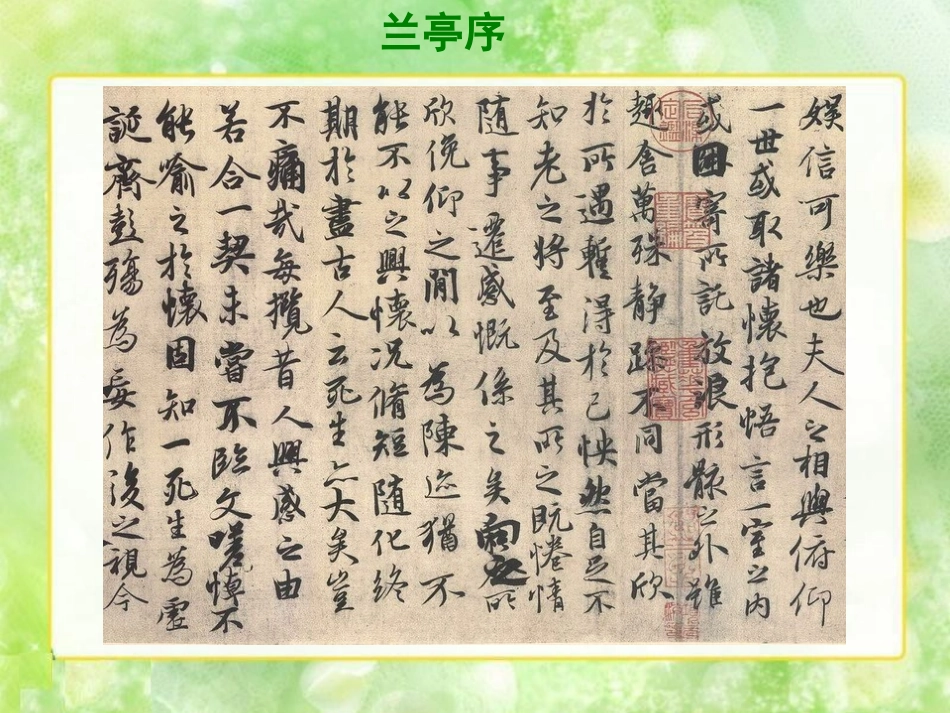 兰亭序
娱信可樂也夫人之相與俯仰
一世或取諸懷抱悟言一室之內
或因寄所託放浪形骸之外雖
趣舍萬殊静躁不同當其欣
於所遇暫得於己怏然自足不
知老之將至及其所之既惓情
隨事遷感慨係之矣向之所
欣俛仰之閒以為陳迹猶不
能不以之興懷況脩短隨化終
期於盡古人云死生亦大矣豈
不痛哉每攬昔人興感之由
若合一契未嘗不臨文嗟悼不
能喻之於懷固知一死生為虛
誕齊彭殤為妄作後之視今